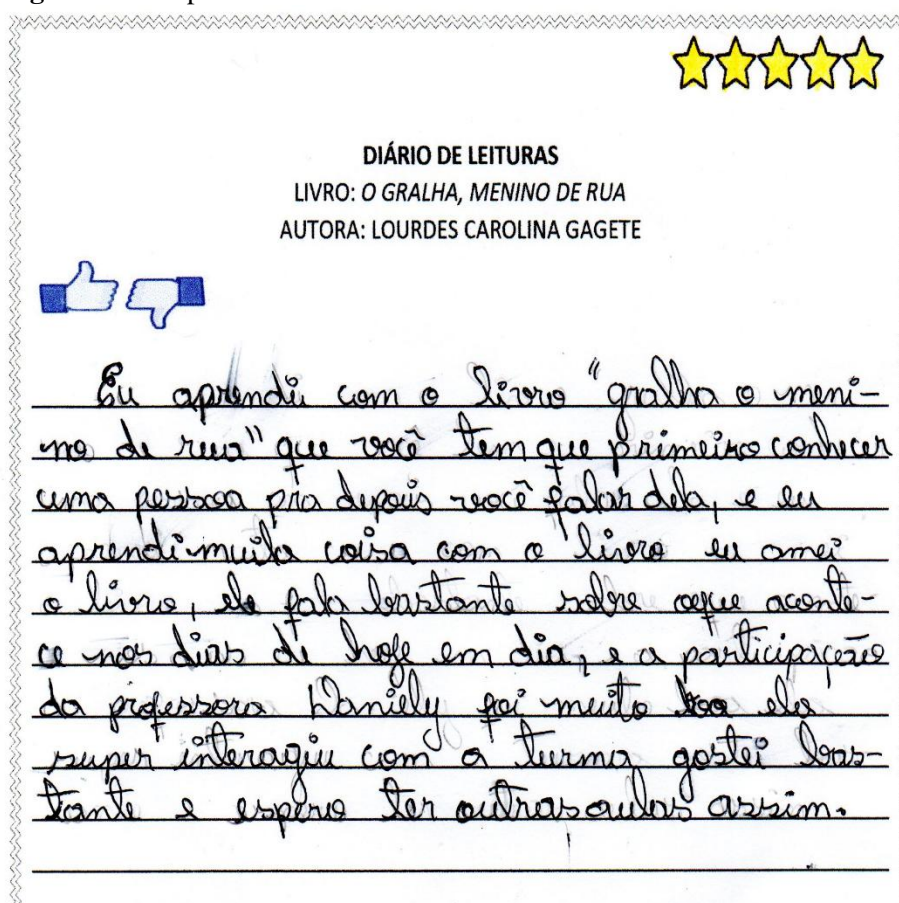 DIÁRIO DE LEITURAS
LIVRO: O GRALHA, MENINO DE RUA
AUTORA: LOURDES CAROLINA GAGETE
Eu aprendi com o livro "gralha o meni-
no de rua" que você tem que primeiro conhecer
uma pessoa pra depois você falar dela, e eu
aprendi muita coisa com o livro eu amei
o livro, ele fala bastante sobre oque aconte-
ce nos dias de hoje em dia, e a participação
da professora Daniely foi muito boa ela
super interagiu com a turma gostei bas-
tante e espero ter outras aulas assim.